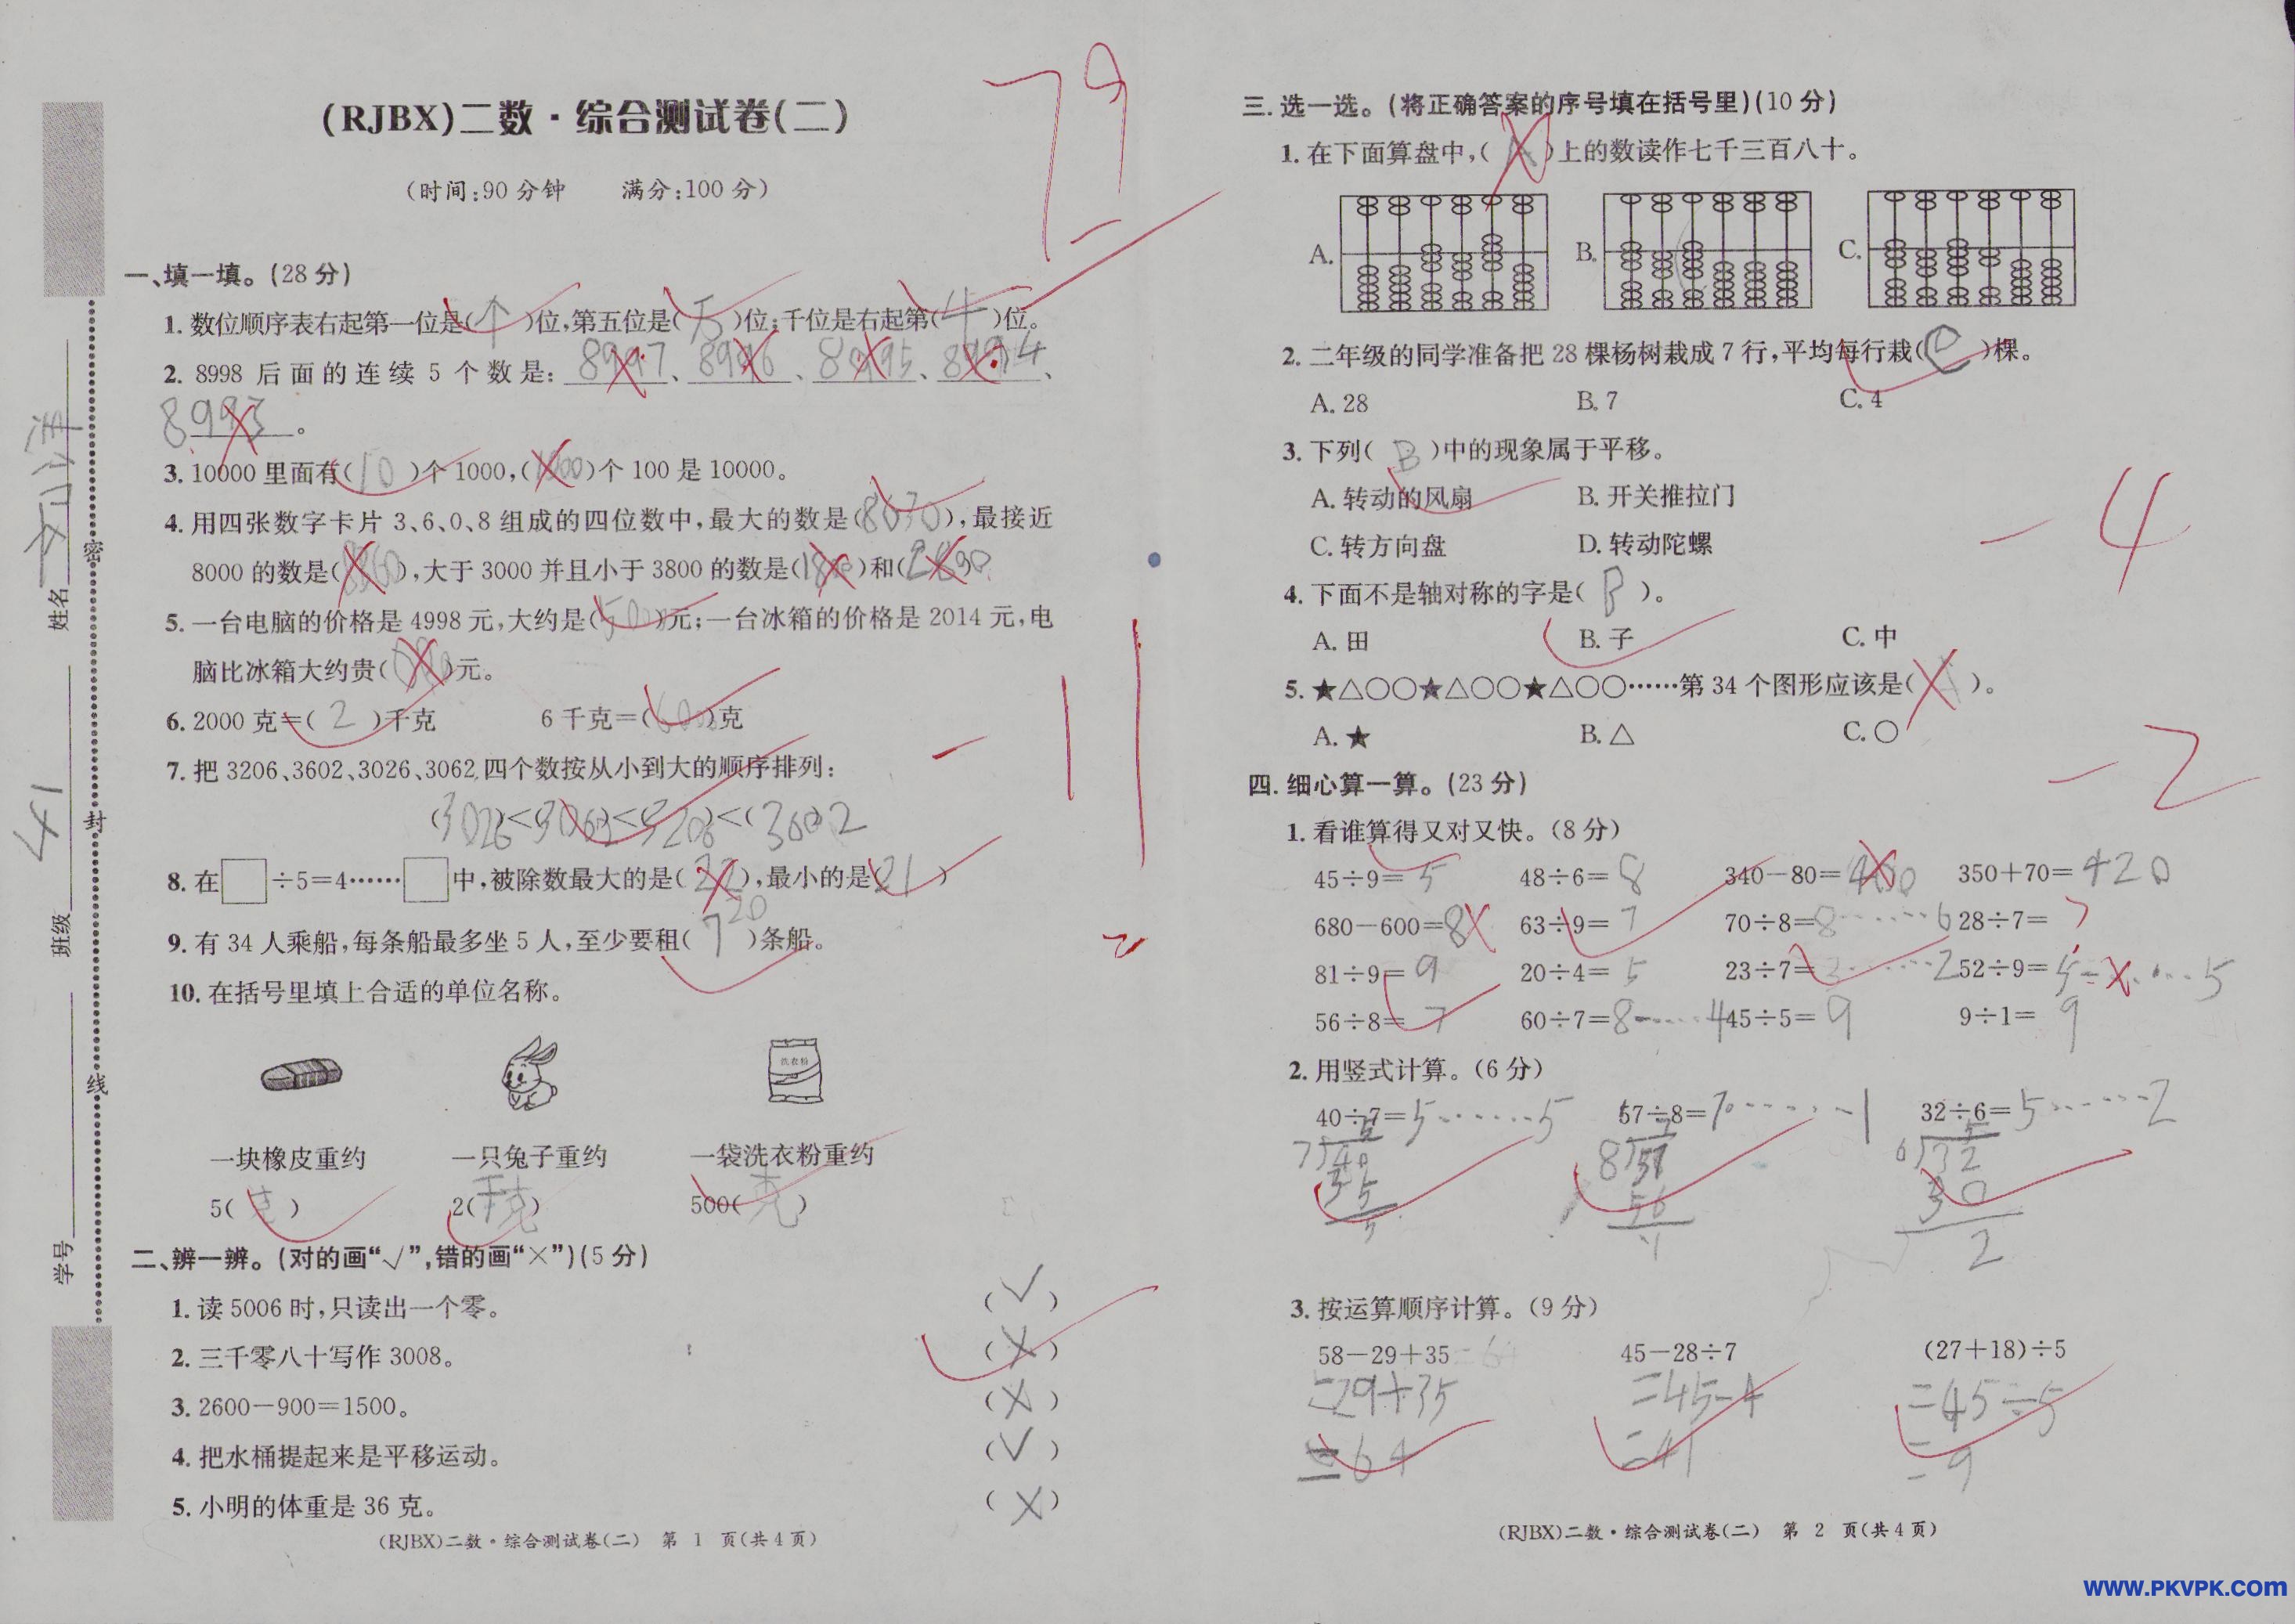 79
(RJBX)二数·综合测试卷(二)
(时间:90分钟 满分:100分)
一、填一填。(28分)
1. 数位顺序表右起第一位是(个)位,第五位是(万)位;千位是右起第(4)位。
2. 8998后面的连续5个数是:8997、8996、8995、8994、
8993。
3. 10000里面有(10)个1000,(1000)个100是10000。
4. 用四张数字卡片3、6、0、8组成的四位数中,最大的数是(8630),最接近
8000的数是( ),大于3000并且小于3800的数是( )和( )
5. 一台电脑的价格是4998元,大约是( )元;一台冰箱的价格是2014元,电
脑比冰箱大约贵( )元。
6. 2000克=(2)千克 6千克=( )克
7. 把3206、3602、3026、3062四个数按从小到大的顺序排列:
(3026)<(3062)<(3206)<(3602
8. 在□÷5=4……□中,被除数最大的是(22),最小的是(21)
20
9. 有34人乘船,每条船最多坐5人,至少要租(7)条船。
10. 在括号里填上合适的单位名称。
洗衣粉
一块橡皮重约 一只兔子重约 一袋洗衣粉重约
5(克) 2(千克) 500(克)
-11
二、辨一辨。(对的画“√”,错的画“×”)(5分)
1. 读5006时,只读出一个零。 (√)
2. 三千零八十写作3008。 (×)
3. 2600-900=1500。 (×)
4. 把水桶提起来是平移运动。 (√)
5. 小明的体重是36克。 (×)
(RJBX)二数·综合测试卷(二) 第 1 页(共4页)
姓名
班级
学号
密
封
线
三. 选一选。(将正确答案的序号填在括号里)(10分)
1. 在下面算盘中,(A)上的数读作七千三百八十。
A. B. C.
2. 二年级的同学准备把28棵杨树栽成7行,平均每行栽(C)棵。
A. 28 B. 7 C. 4
3. 下列(B)中的现象属于平移。
A. 转动的风扇 B. 开关推拉门
C. 转方向盘 D. 转动陀螺
-4
4. 下面不是轴对称的字是(B)。
A. 田 B. 子 C. 中
5. ★△○○★△○○★△○○……第34个图形应该是(A)。
A. ★ B. △ C. ○
-2
四. 细心算一算。(23分)
1. 看谁算得又对又快。(8分)
45÷9=5 48÷6=8 340-80= 350+70=420
680-600=8 63÷9=7 70÷8=8……6 28÷7=
81÷9=9 20÷4=5 23÷7=3……2 52÷9=5……5
56÷8=7 60÷7=8……4 45÷5=9 9÷1=9
2. 用竖式计算。(6分)
40÷7=5……5 57÷8=7……1 32÷6=5……2
5 7 5
7 40 8 57 6 32
35 56 30
5 1 2
3. 按运算顺序计算。(9分)
58-29+35=64 45-28÷7 (27+18)÷5
=29+35 =45-4 =45÷5
=64 =41 =9
(RJBX)二数·综合测试卷(二) 第 2 页(共4页)
www.PKVPK.com